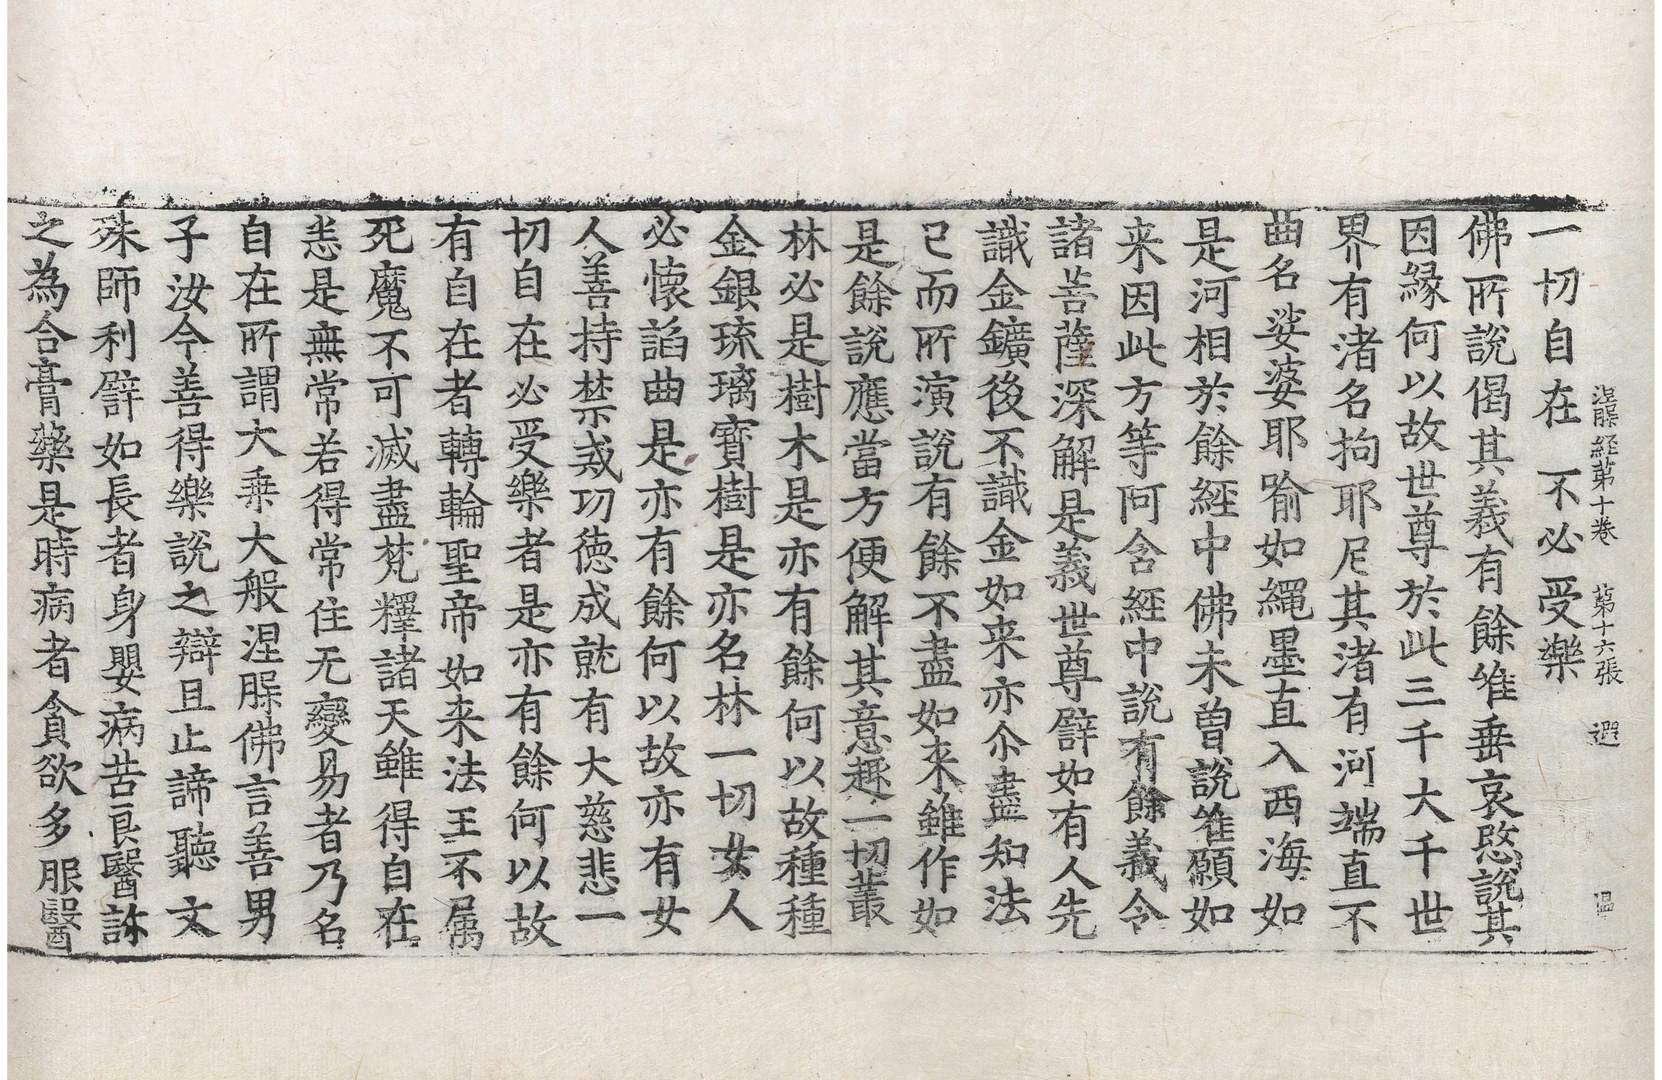 涅槃経苐十卷 苐十六張 遐 温
一切自在 不必受樂
佛所説偈其義有餘唯垂哀愍説其
因縁何以故世尊於此三千大千世
界有渚名拘耶尼其渚有河端直不
曲名娑婆耶喻如繩墨直入西海如
是河相於餘經中佛未曽説唯願如
来因此方等阿含經中説有餘義令
諸菩薩深解是義世尊辟如有人先
識金鑛後不識金如来亦尒盡知法
已而所演説有餘不盡如来雖作如
是餘説應當方便解其意趣一切叢
林必是樹木是亦有餘何以故種種
金銀琉璃寶樹是亦名林一切女人
必懷諂曲是亦有餘何以故亦有女
人善持禁戒功徳成就有大慈悲一
切自在必受樂者是亦有餘何以故
有自在者轉輪聖帝如来法王不属
死魔不可滅盡梵釋諸天雖得自在
悉是無常若得常住无變易者乃名
自在所謂大乗大般涅槃佛言善男
子汝今善得樂説之辯且止諦聽文
殊師利辟如長者身嬰病苦良醫訹
之為合膏藥是時病者貪欲多服醫